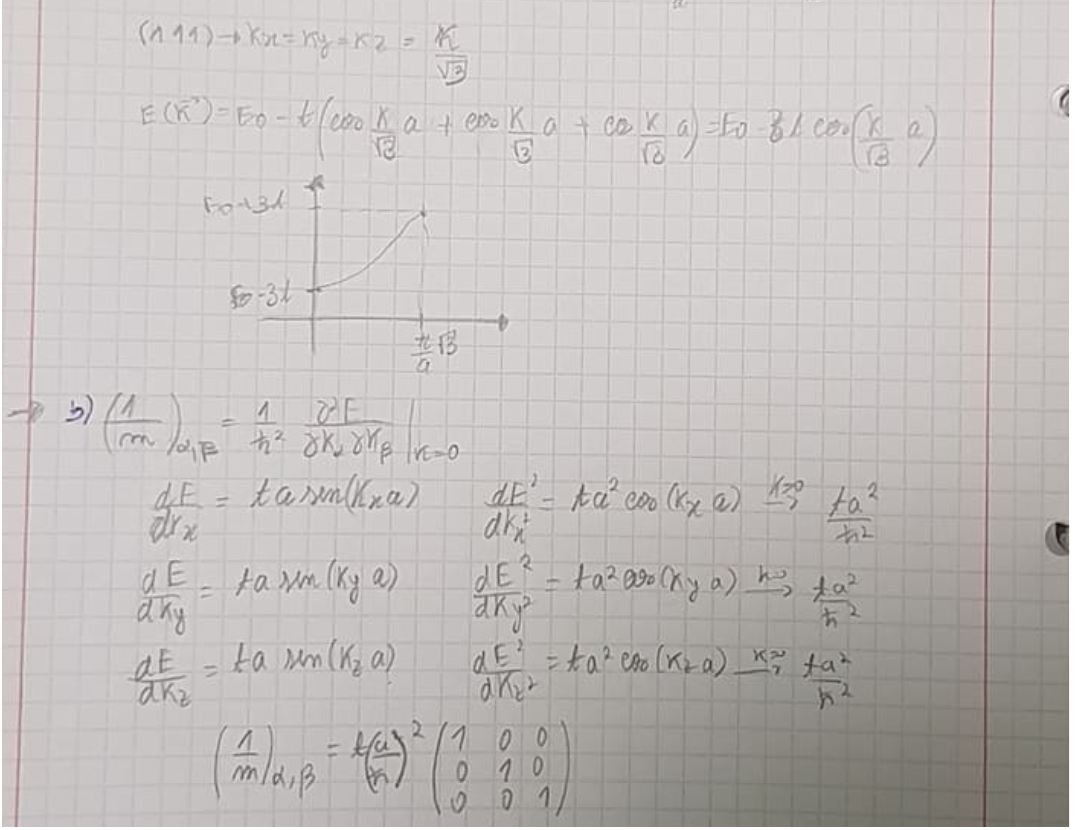 (111) → Kx = Ky = Kz = K/√3
E(K⃗) = E0 - t(cos K/√3 a + cos K/√3 a + cos K/√3 a) = E0 - 3t cos(K/√3 a)
E0+3t
E0-3t
π/a √3
→ b) (1/m)α,β = 1/ħ² ∂²E/∂Kα ∂Kβ |K=0
dE/dKx = ta sen(Kx a) dE²/dKx² = ta² cos(Kx a) K→0 → ta²/ħ²
dE/dKy = ta sen(Ky a) dE²/dKy² = ta² cos(Ky a) K→0 → ta²/ħ²
dE/dKz = ta sen(Kz a) dE²/dKz² = ta² cos(Kz a) K→0 → ta²/ħ²
(1/m)α,β = t(a/ħ)² (1 0 0
0 1 0
0 0 1)